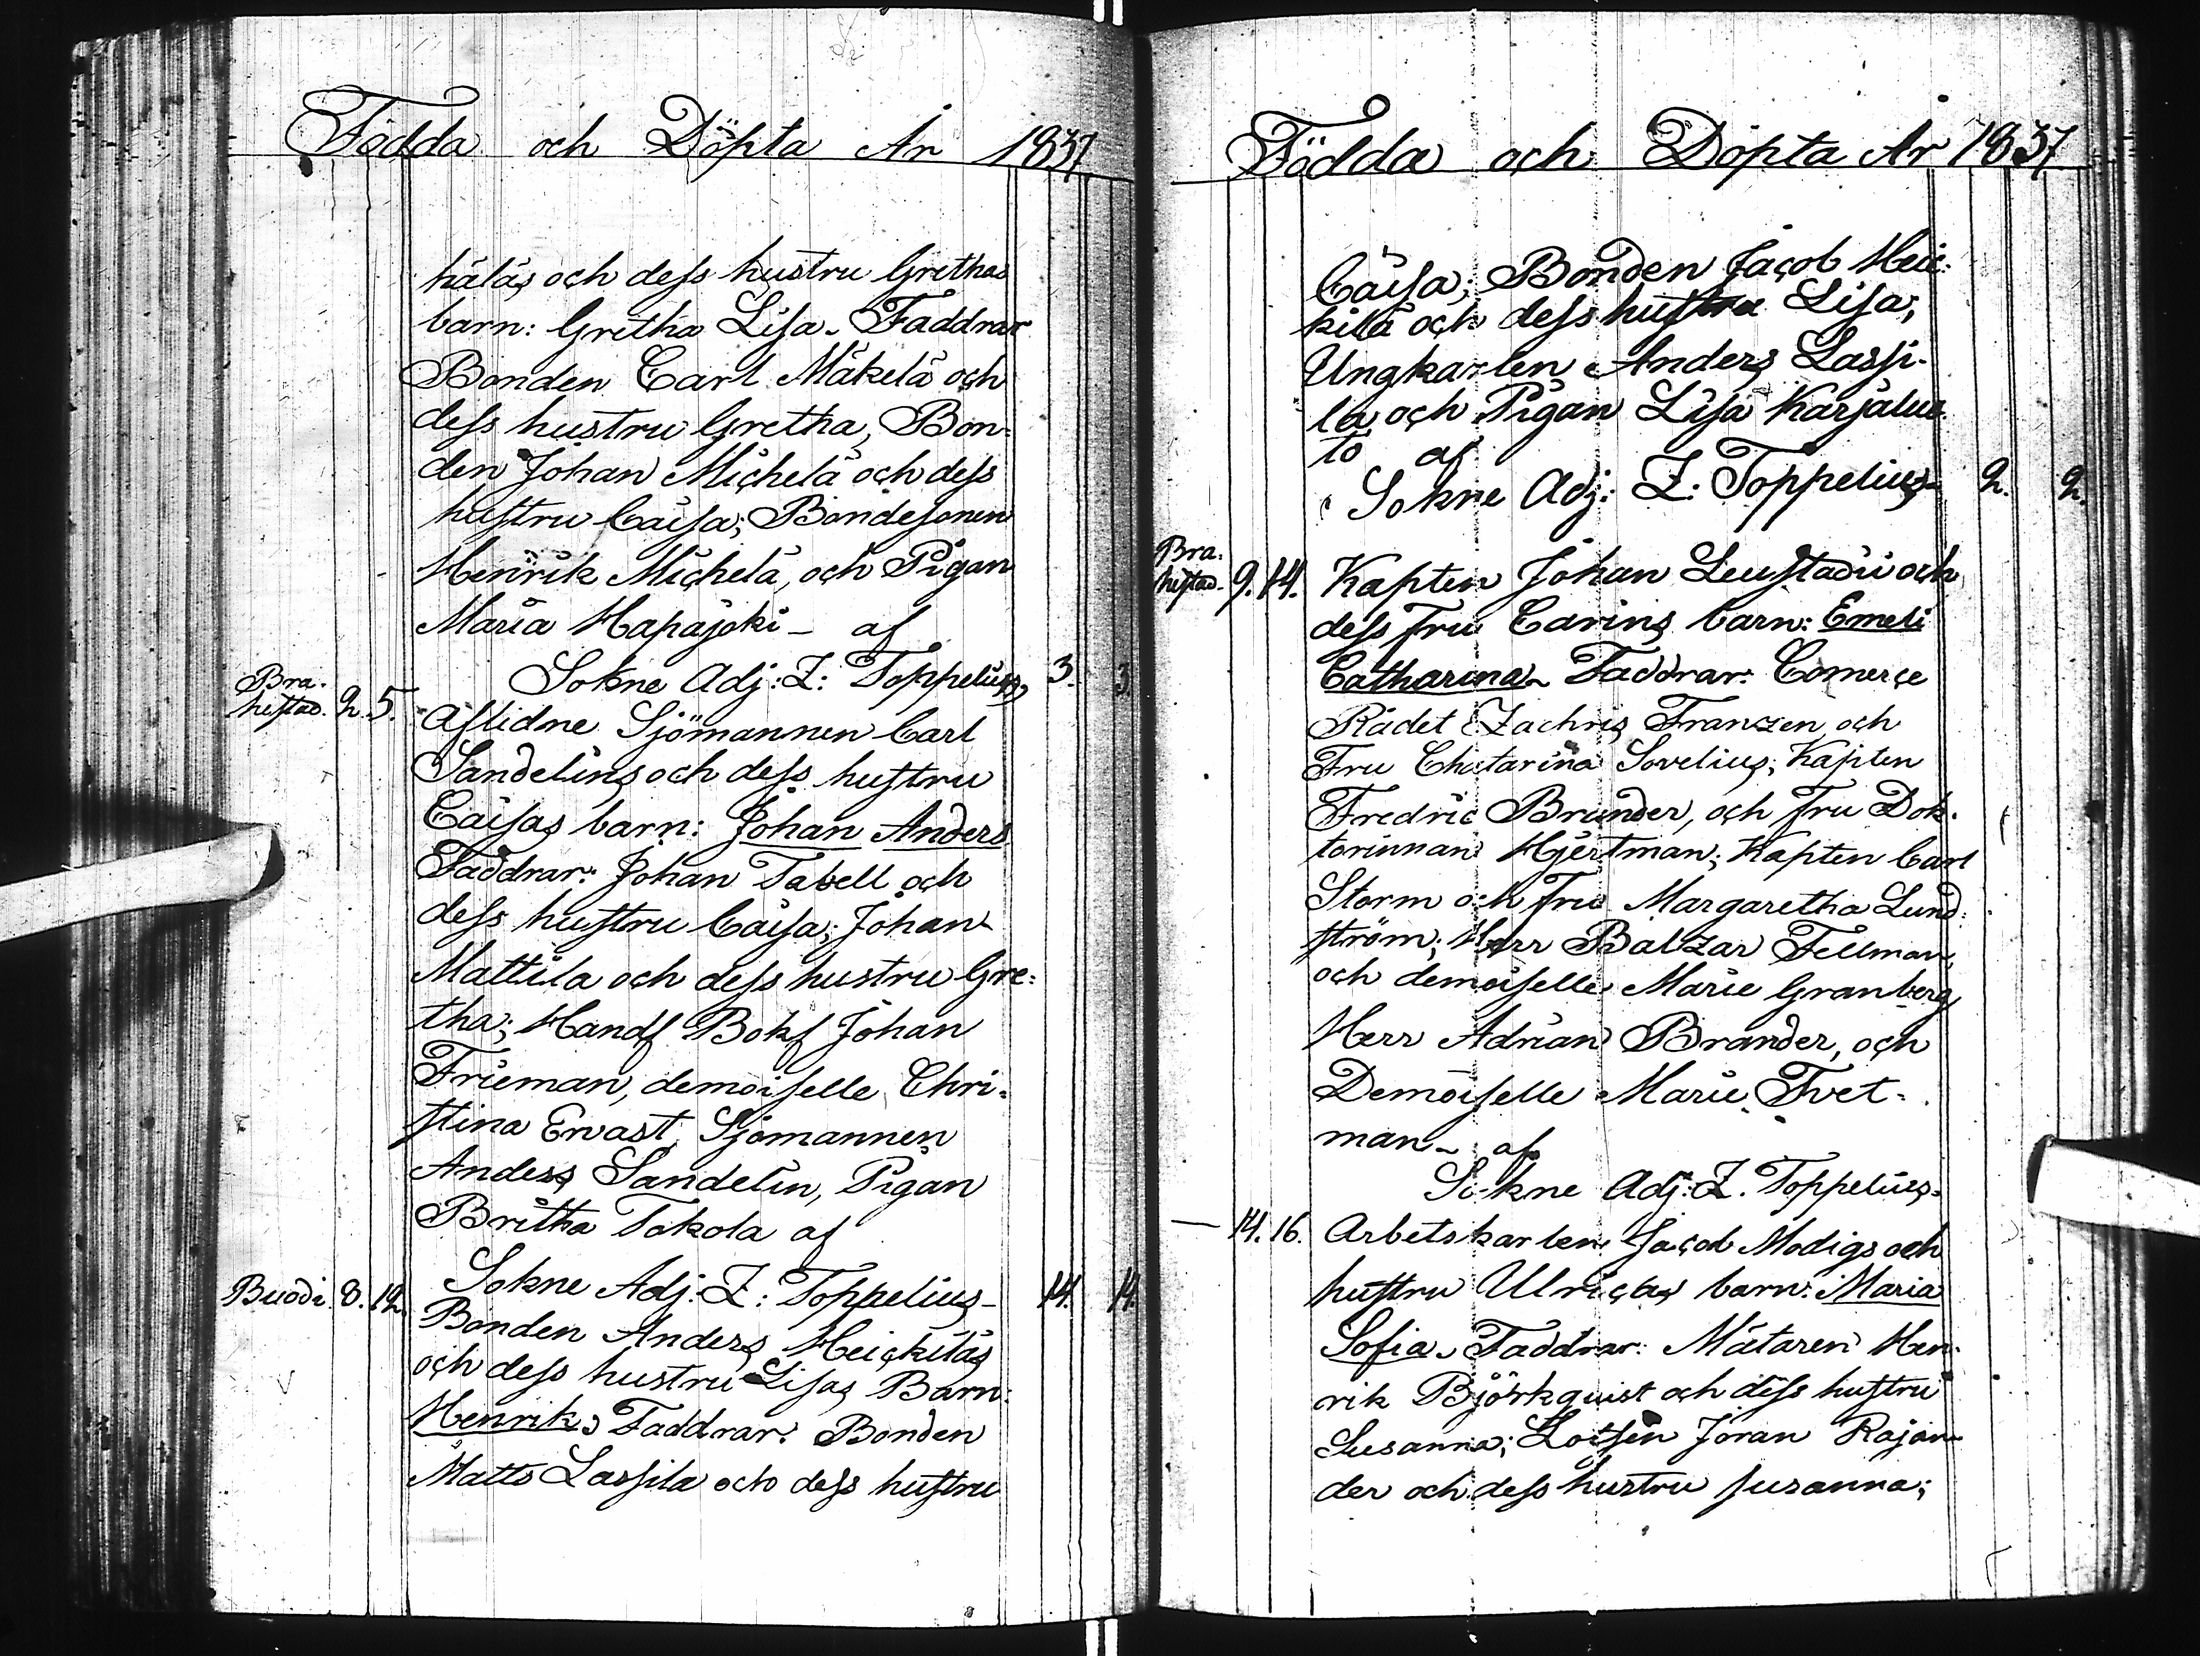 Födda och Döpta År 1837
häläs och dess hustru Grethas
barn: Gretha Lisa. Faddrar
Bonden Carl Mäkelä och
dess hustru Gretha, Bon-
den Johan Michelä och dess
hustru Caisa; Bondesonen
Henrik Michelä, och Pigan
Maria Hapajoki – af
Sokne Adj: Z: Toppelius, 3. 3.
Bra-
hestad. 2. 5. Aflidne Sjömannen Carl
Sandelins och dess hustru
Caisas barn: Johan Anders
Faddrar: Johan Tabell och
dess hustru Caisa; Johan
Mattila och dess hustru Gre-
tha; Handl Bokh Johan
Frieman, demoiselle Chri-
stina Ervast, Sjömannen
Anders Sandelin, Pigan
Britha Tokola af
Sokne Adj: Z: Toppelius – 14. 14.
Buodi 8. 12. Bonden Anders Heickiläs
och dess hustru Lisas Barn:
Henrik. Faddrar: Bonden
Matts Lassila och dess hustru
Födda och Döpta År 1837
Caisa; Bonden Jacob Heic-
kilä och dess hustru Lisa;
Ungkarlen Anders Lassi-
la och Pigan Lisa Karjaluo
to af
Sokne Adj: Z: Toppelius 2. 2.
Bra-
hestad. 9. 14. Kapten Johan Leustadii och
dess Fru Carins barn: Emeli
Catharina. Faddrar: Comerce
Rådet Zachris Franzen och
Fru Chatarina Sovelius; Kapten
Fredric Brunder, och Fru Dok-
torinnan Hjertman; Kapten Carl
Storm och Fru Margaretha Lund-
ström; Herr Baltzar Fellman,
och demoiselle Marie Granberg
Herr Adrian Brander, och
Demoiselle Marie Tvet-
man – af
Sokne Adj: Z. Toppelius.
— 14. 16. Arbetskarlen Jacob Modigs och
hustru Ulricas barn: Maria
Sofia. Faddrar: Mätaren Hen-
rik Björkquist och dess hustru
Susanna; Lotsen Jöran Rajan-
der och dess hustru Susanna;